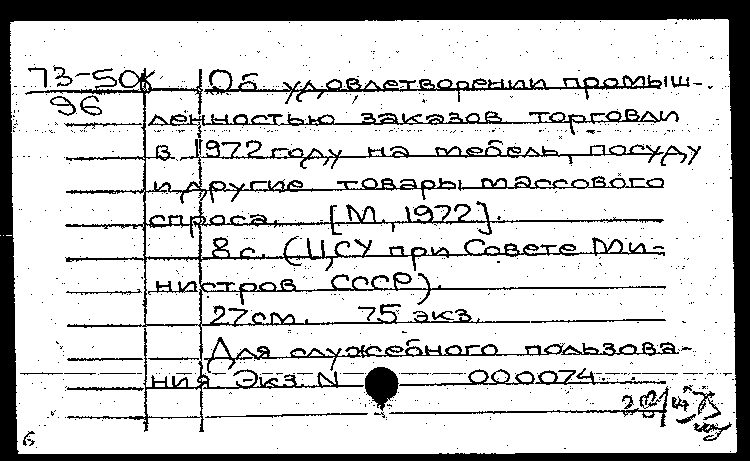 73-50к Об удовлетворении промыш-
96
ленностью заказов торговли
в 1972 году на мебель, посуду
и другие товары массового
спроса. [М., 1972].
8 с. (ЦСУ при Совете Ми-
нистров СССР).
27 см. 75 экз.
Для служебного пользова-
ния Экз. N 000074.
6